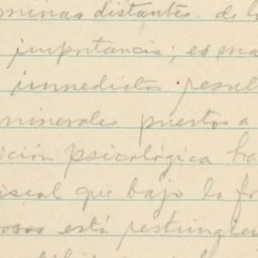 minas distantes de l
importancia; es ma
inmediatos resul
minerales puestos a
ición psicológica ba
iscal que bajo la fr
está restringi